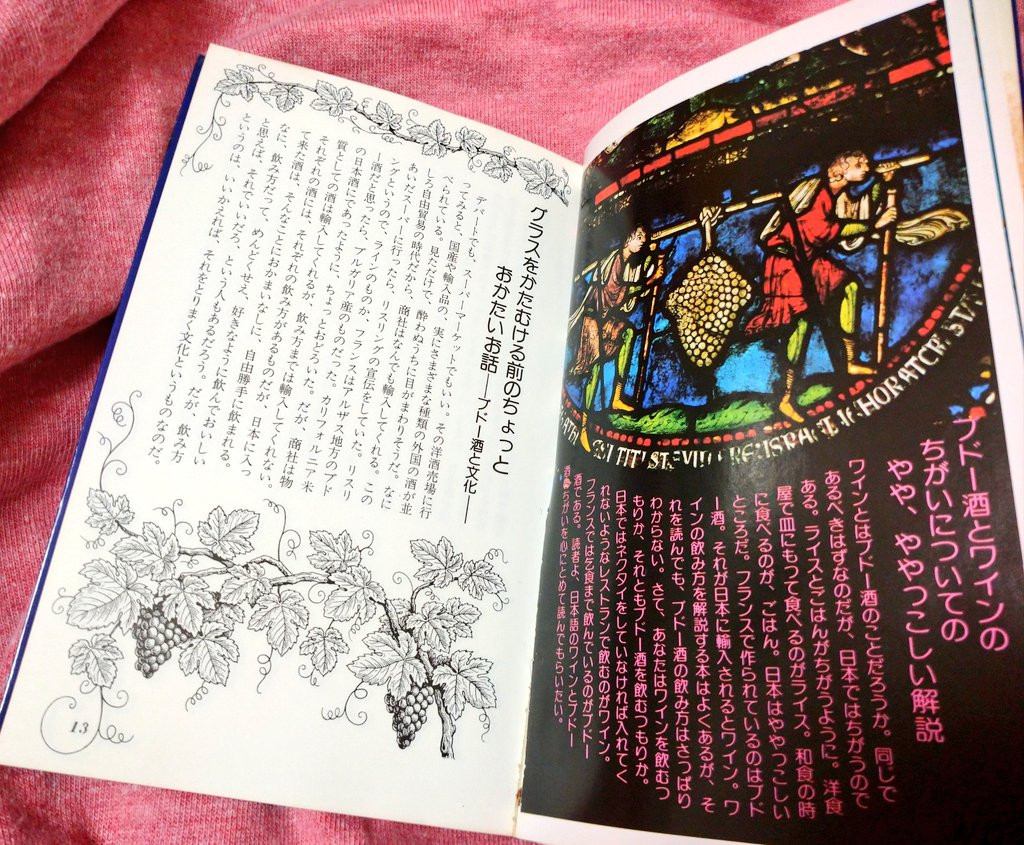 ブドー酒とワインの
ちがいについての
やや、ややっこしい解説
ワインとはブドー酒のことだろうか。同じで
あるべきはずなのだが、日本ではちがうので
ある。ライスとごはんがちがうように。洋食
屋で皿にもって食べるのがライス。和食の時
に食べるのが、ごはん。日本はややっこしい
ところだ。フランスで作られているのはブド
ー酒。それが日本に輸入されるとワイン。ワ
インの飲み方を解説する本はよくあるが、そ
れを読んでも、ブドー酒の飲み方はさっぱり
わからない。さて、あなたはワインを飲むつ
もりか、それともブドー酒を飲むつもりか。
日本ではネクタイをしていなければ入れてく
れないようなレストランで飲むのがワイン。
フランスでは乞食まで飲んでいるのがブドー
酒である。読者よ、日本語のワインとブドー
酒のちがいを心にとめて読んでもらいたい。
グラスをかたむける前のちょっと
おかたいお話——ブドー酒と文化——
デパートでも、スーパーマーケットでもいい。その洋酒売場に行
ってみると、国産や輸入品の、実にさまざまな種類の外国の酒が並
べられている。見ただけで、酔わぬうちに目がまわりそうだ。なに
しろ自由貿易の時代だから、商社はなんでも輸入してくれる。この
あいだスーパーに行ったら、リスリングの宣伝をしていた。リスリ
ングというので、ラインのものか、フランスはアルザス地方のブド
ー酒だと思ったら、ブルガリア産のものだった。カリフォルニア米
の日本酒にであったように、ちょっとおどろいた。だが、商社は物
質としての酒は輸入してくれるが、飲み方までは輸入してくれない。
それぞれの酒には、それぞれ飲み方があるものだが、日本に入っ
て来た酒は、そんなことにおかまいなしに、自由勝手に飲まれる。
なに、飲み方だって、めんどくせえ、好きなように飲んでおいしい
と思えば、それでいいだろ、という人もあるだろう。だが、飲み方
というのは、いいかえれば、それをとりまく文化というものなのだ。
13